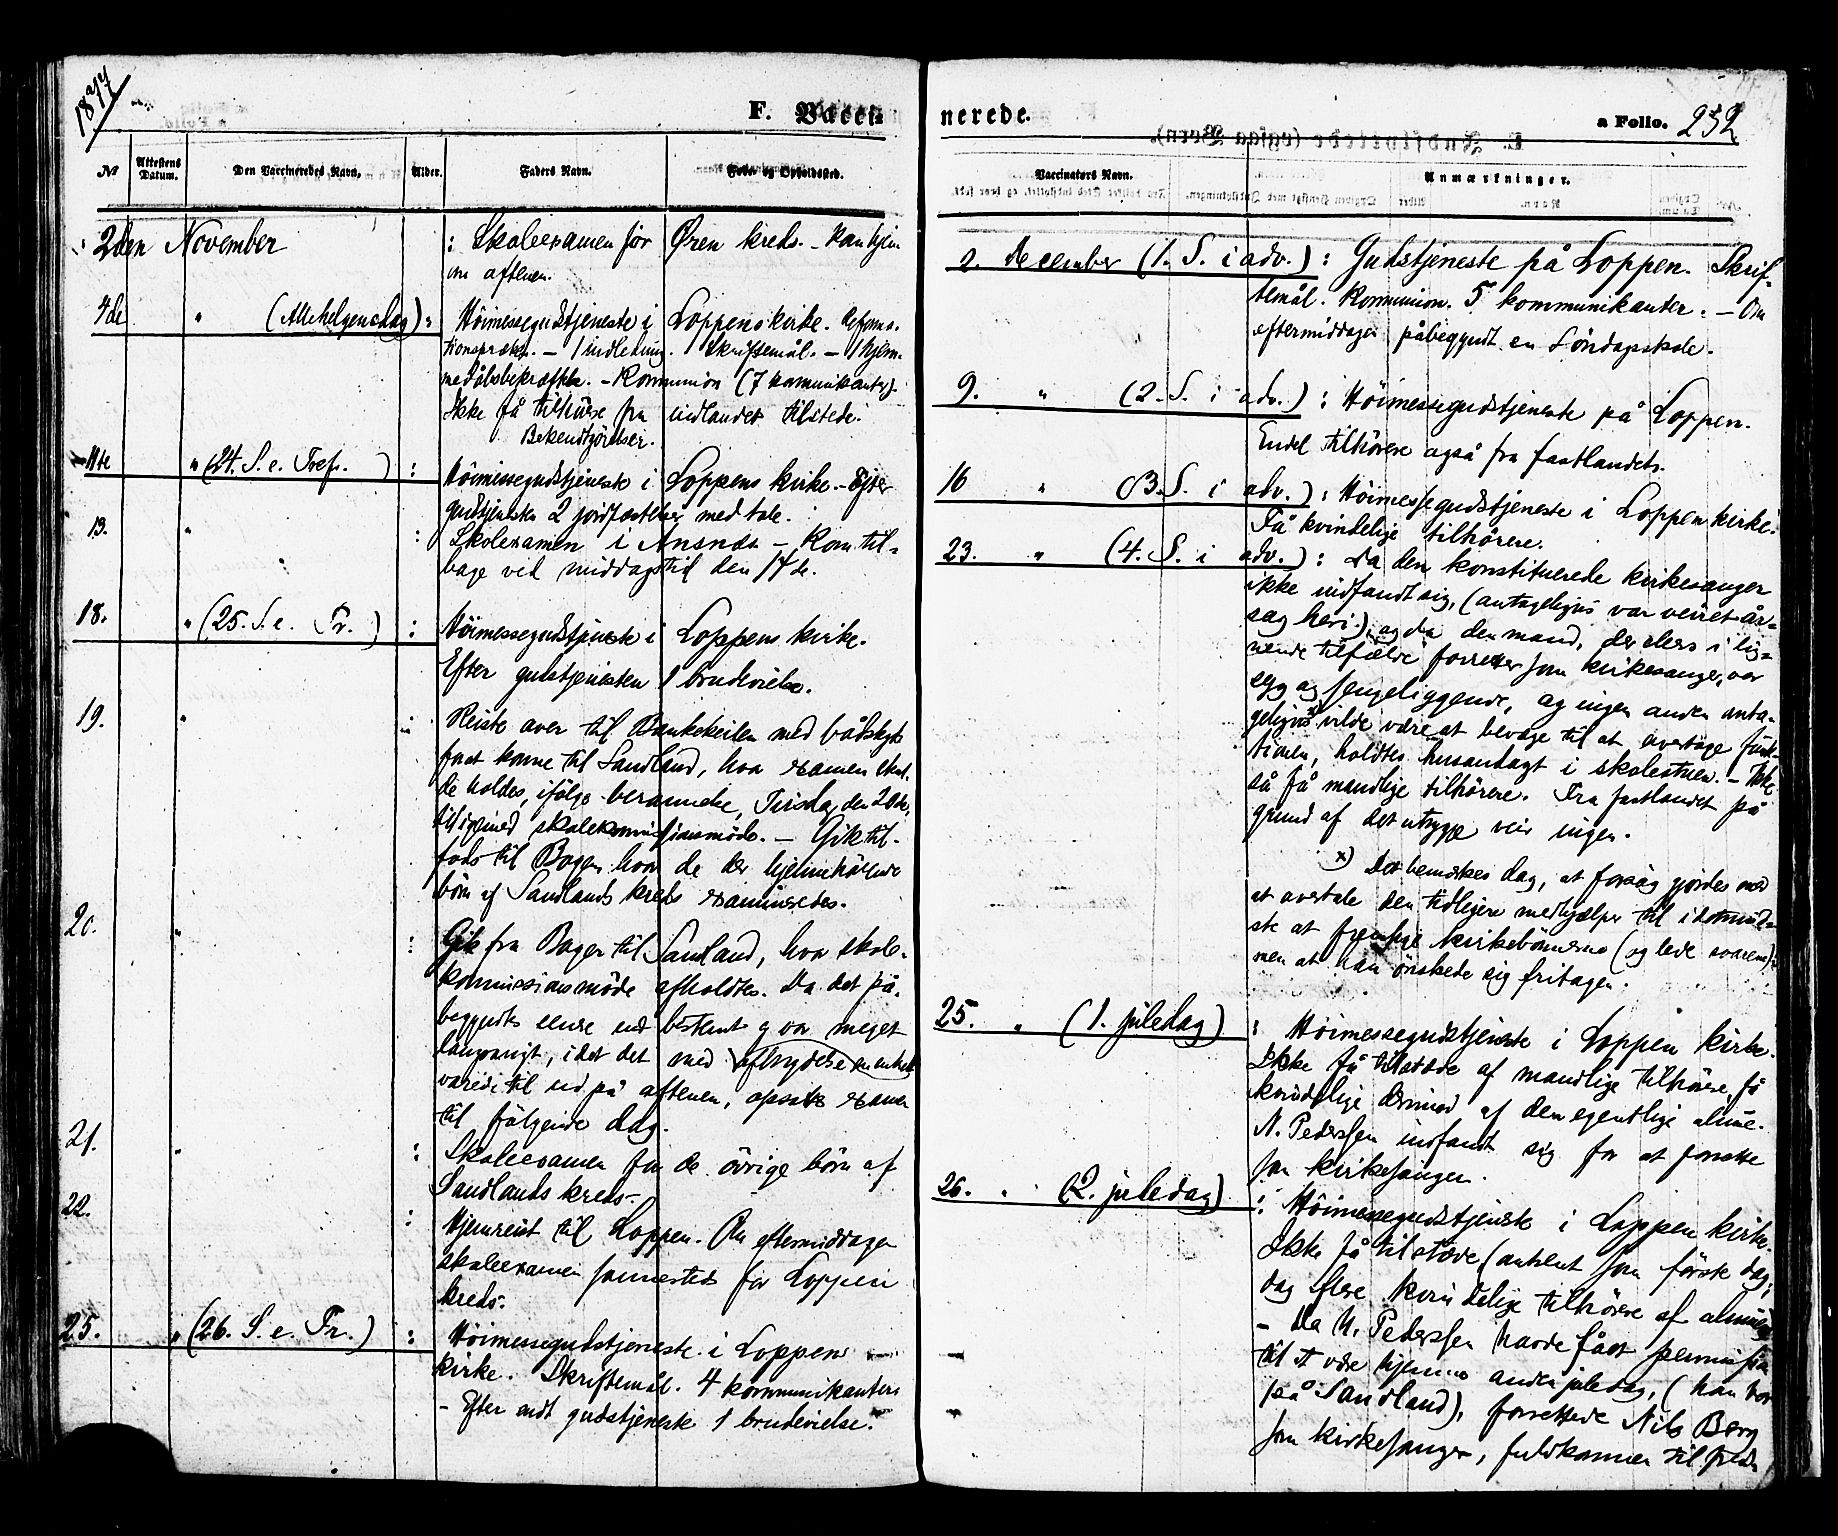 1877
F. Vacci-
No
Attestens Datum.
Den Vaccineredes Navn.
Alder.
Faders Navn.
Føde- og Opholdssted.
2den November : Skoleexamen for Øren kreds. - Kom hjem
om aftenen.
4de " (Allehelgensdag) : Höimessegudstjeneste i Loppens kirke. Reforma-
tionspræken. - 1 indledning. Skriftemål. - 1 hjem-
medåbsbekræftelse. - Kommunion (7 kommunikanter).
Ikke få tilhörere fra indlandet tilstede.
Bekendtgörelser.
11te " (24. S. e. Tref. ) : Höimessegudstjeneste i Loppens kirke. - Efter
gudstjenesten 2 jordfæstelser med tale.
13. " : Skolexamen i Ansnes - Kom til-
bage ved middagstid den 14de.
18. " (25. S. e. Tr. ) : Höimessegudstjeneste i Loppens kirke.
Efter gudstjenesten 1 brudevielse.
19. " : Reiste over til Bankekeilen med bådskyds
for at komme til Sandland, hvor examen skul-
de holdes, ifölge berammelse, Tirsdag den 20de,
tilligemed skolekommissionsmöde. - Gik til-
fods til Bogen, hvor de der hjemmehörende
börn af Sandlands kreds examineredes.
20. " : Gik fra Bogen til Sandland, hvor skole-
kommissionsmöde afholdtes. Da det på-
begyndtes senere end bestemt og var meget
langvarigt, idet det med afbrydelse
varede til ud på aftenen, opsattes examen
til fölgende dag.
21. " : Skoleexamen for de övrige börn af
Sandlands kreds.
22. : Hjemreist til Loppen. Om eftermiddagen
skoleexamen sammesteds for Loppen
kreds.
25. " (26. S. e. Tr. ) : Höimessegudstjeneste i Loppen
kirke. Skriftemål. 4 kommunikanter.
- Efter endt gudstjeneste 1 brudevielse.
nerede.
a Folio. 232
Vaccinators Navn.
Anmærkninger.
2. december (1. S. i adv.) : Gudstjeneste på Loppen. Skrif-
temål. Kommunion. 5 kommunikanter. - Om
eftermiddagen påbegyndt en Söndagsskole.
9. " (2. S. i adv.) : Höimessegudstjeneste på Loppen.
Endel tilhörere også fra fastlandet.
16 " (3. S. i adv.) : Höimessegudstjeneste i Loppen kirke.
Få kvindelige tilhörere.
23. " (4. S. i adv.) : Da den konstituerede kirkesanger
ikke indfandt sig, (antageligvis var veiret år-
sag heri), og da den mand, der ellers i lig-
nende tilfælde forretter som kirkesanger, var
syg og sengeliggende, og ingen anden anta-
geligvis x) vilde være at bevæge til at overtage funk-
tionen, holdtes husandagt i skolestuen. - Ikke
så få mandlige tilhörere. Fra fastlandet på
grund af det utrygge veir ingen.
x) Det bemærkes dog, at forsög gjordes med
at overtale den tidligere medhjælper til idetmind-
ste at fremsige kirkebönnerne (og lede svarene),
men at han önskede sig fritagen.
25. " (1. juledag) : Höimessegudstjeneste i Loppen kirke.
Ikke få tilstede af mandlige tilhörere, få
kvindelige derimod af den egentlige almue.
N. Pederssen indfandt sig for at forrette
som kirkesanger.
26. " (2. juledag) : Höimessegudstjeneste i Loppen kirke.
Ikke få tilstede (omtrent som förste dag,
dog flere kvindelige tilhörere af almuen)
- Da N. Pederssen havde fået permission
til at være hjemme anden juledag, (han bor
på Sandland), forrettede Nils Berg
som kirkesanger, fuldkommen til